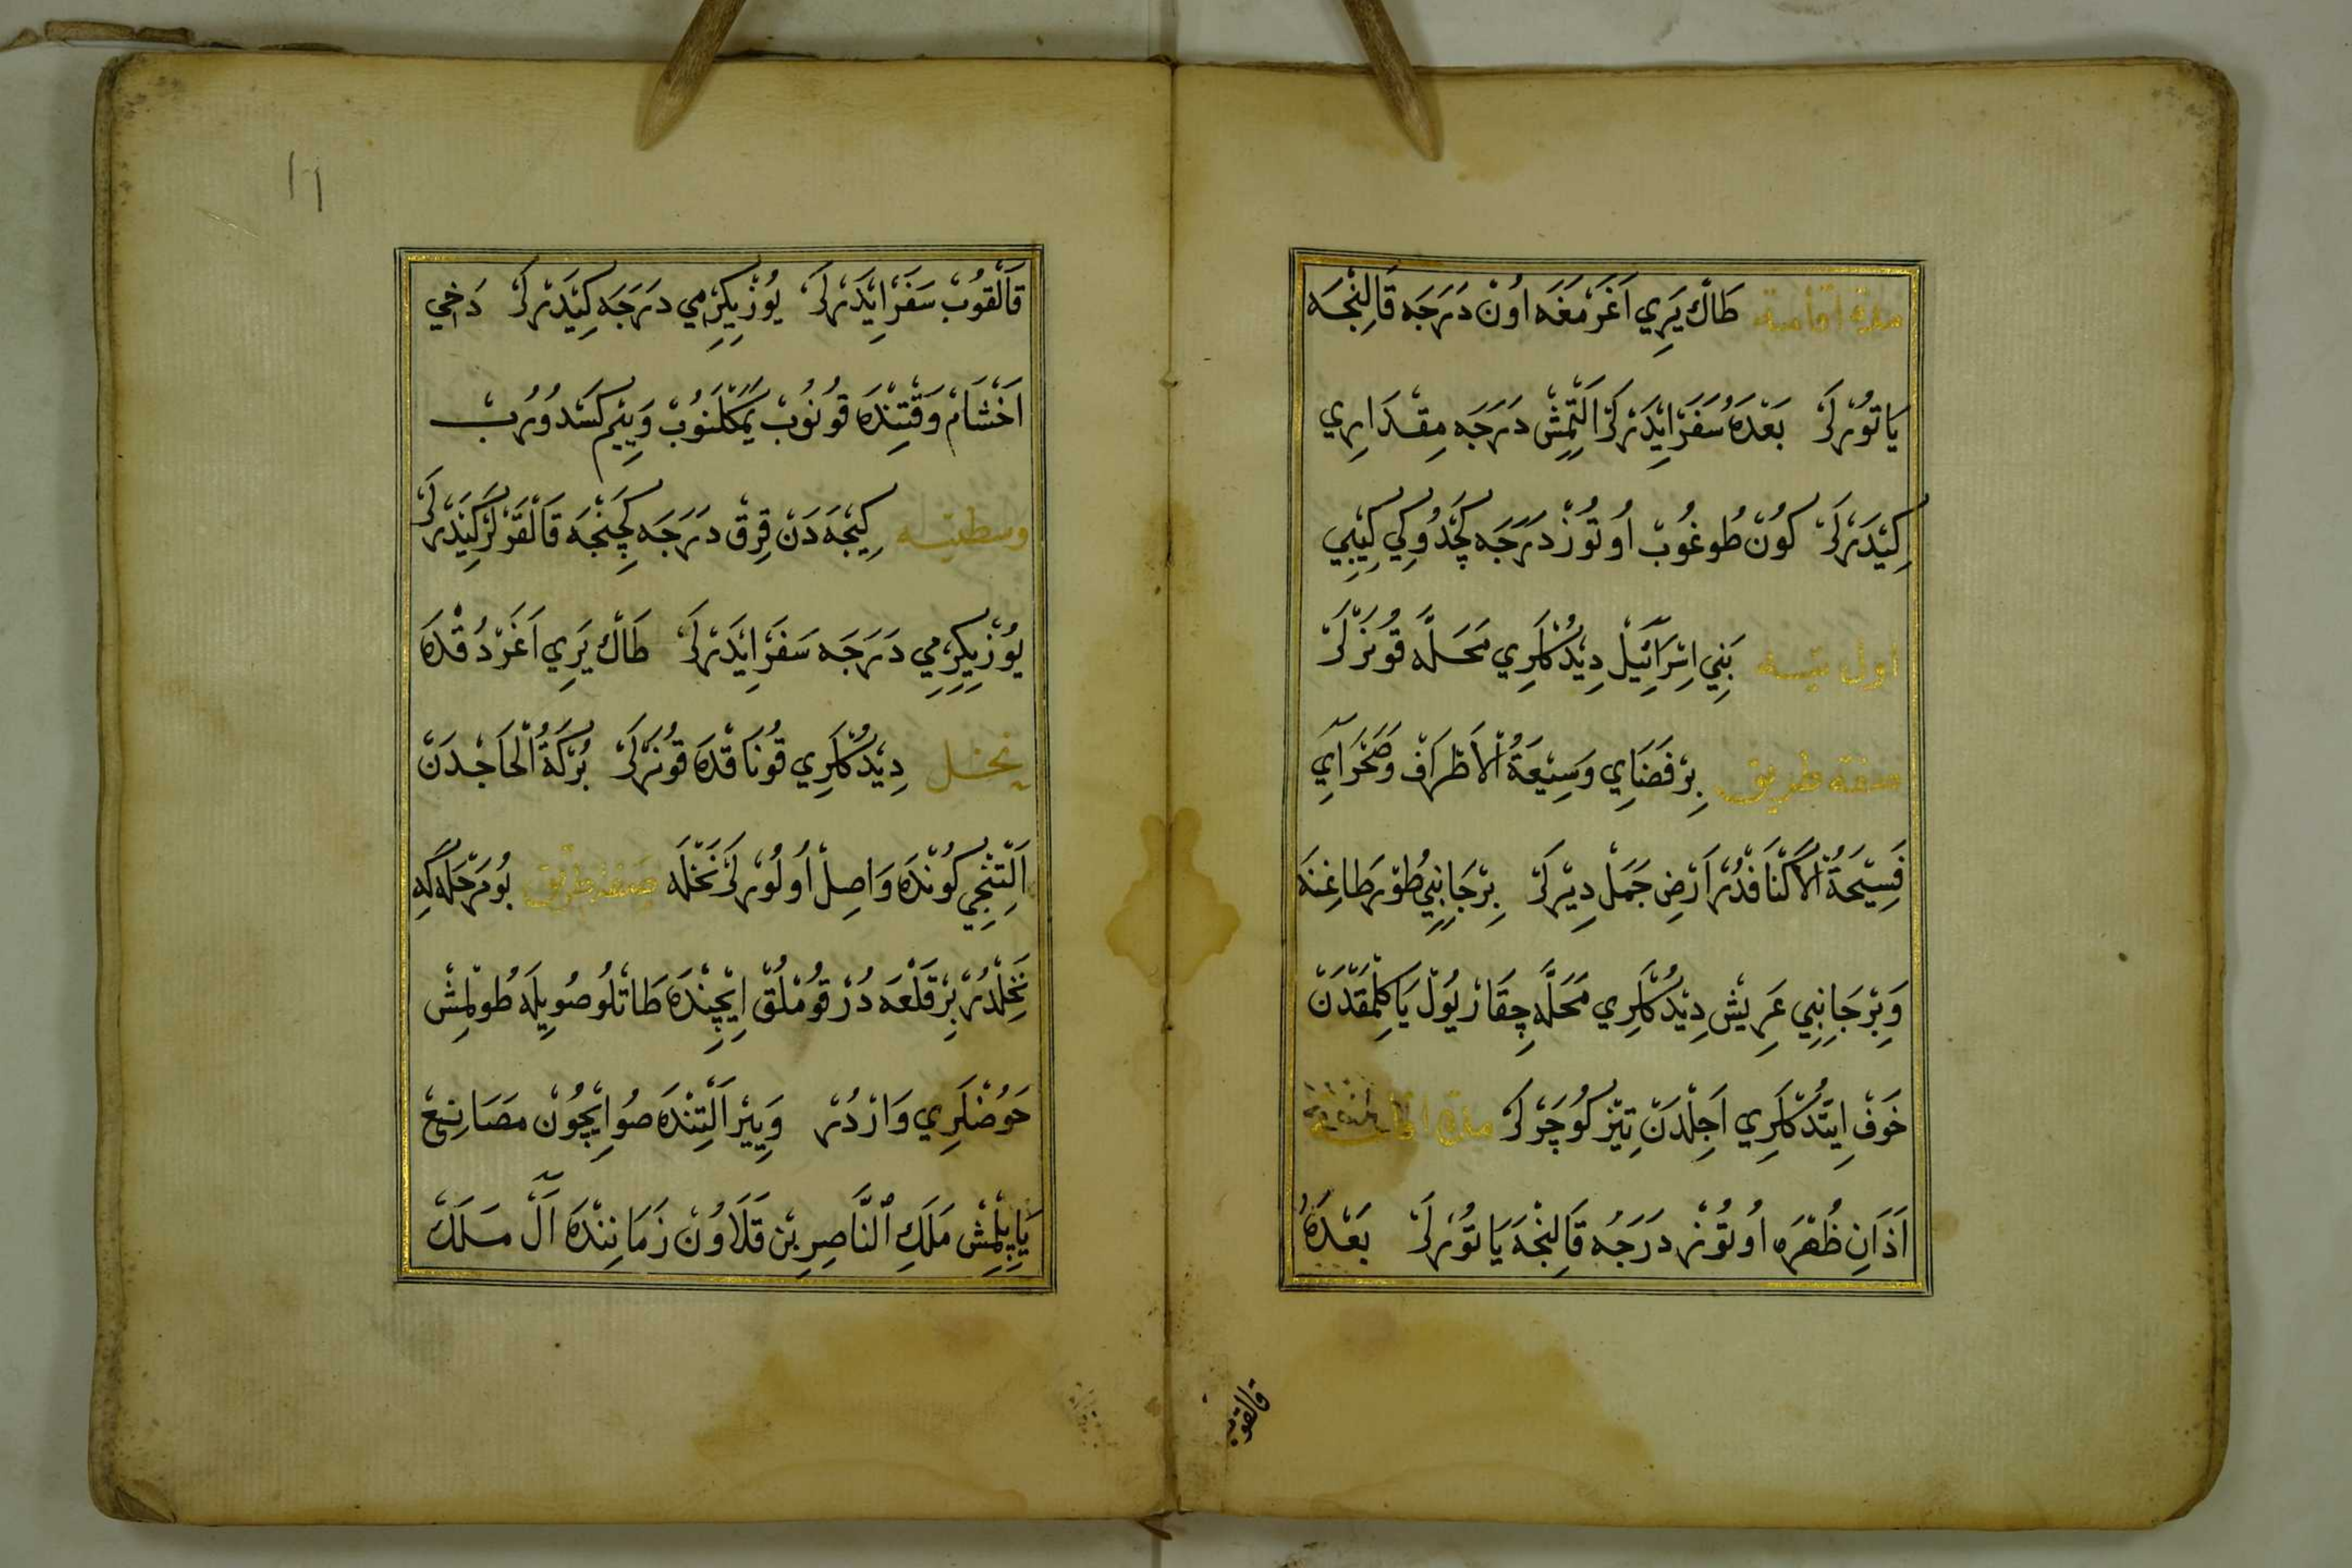 مدة اقامت طَاڭ يَرِي اَغَرْمَغَه اُونْ دَرَجَه قَالِنْجَه
يَاتُورْلَرْ بَعْدَهُ سَفَرْ اِيدَرْلَرْ اَلْتْمِشْ دَرَجَه مِقْدَارِي
كِيدَرْلَرْ كُونْ طُوغُوبْ اُوتُوزْ دَرَجَه كَچْدُوكِي كِيبِي
اول تيه بَنِي اِسْرَائِيلْ دِيدُكْلَرِي مَحَلَّه قُونَرْلَرْ
صفة طريق بِرْ فَضَايِ وَسِيعَةُ الْاَطْرَافْ وَصَحْرَايِ
فَسِيحَةُ الْاَكْنَافْدُرْ اَرْضِ جَمَلْ دِيرْلَرْ بِرْ جَانِبِي طُورْ طَاغِنَه
وَبِرْ جَانِبِي عَرِيشْ دِيدُكْلَرِي مَحَلَّه چِقَارْ يُولْ يَاكِلْمَقْدَنْ
خَوْفْ اِيتْدُكْلَرِي اَجِلْدَنْ تِيزْ كُوچَرْلَرْ مدة
اَذَانِ ظُهْرَه اُوتُوزْ دَرَجَه قَالِنْجَه يَاتُورْلَرْ بَعْدَهُ
قالقوب
١٦
قَالْقُوبْ سَفَرْ اِيدَرْلَرْ يُوزْ يِكِرْمِي دَرَجَه كِيدَرْلَرْ دَخِي
اَخْشَامْ وَقْتِنْدَه قُونُوبْ يَمَكْلَنُوبْ وَيِيمْ كَسْدُورُبْ
وسطيته كِيجَه دَنْ قِرْقْ دَرَجَه كَچِنْجَه قَالْقَرْلَرْ كِيدَرْلَرْ
يُوزْ يِكِرْمِي دَرَجَه سَفَرْ اِيدَرْلَرْ طَاڭ يَرِي اَغَرْدُقْدَه
نخل دِيدُكْلَرِي قُونَاقْدَه قُونَرْلَرْ بُرْكَةُ الْحَاجْدَنْ
اَلْتِنْجِي كُونْدَه وَاصِلْ اُولُورْلَرْ نَخْلَه صفة طريق بُو مَرْحَلَه كِه
نَخِلْدُرْ بِرْ قَلْعَه دُرْ قُومْلُقْ اِيچِنْدَه طَاتْلُو صُويِلَه طُولْمِشْ
حَوُضْلَرِي وَارْدُرْ وَيِيرْ اَلْتِنْدَه صُو اِيچُونْ مَصَانِعْ
يَاپِلْمِشْ مَلَكِ النَّاصِرِ بْنِ قَلَاوُنْ زَمَانِنْدَه آلْ مَلَكْ